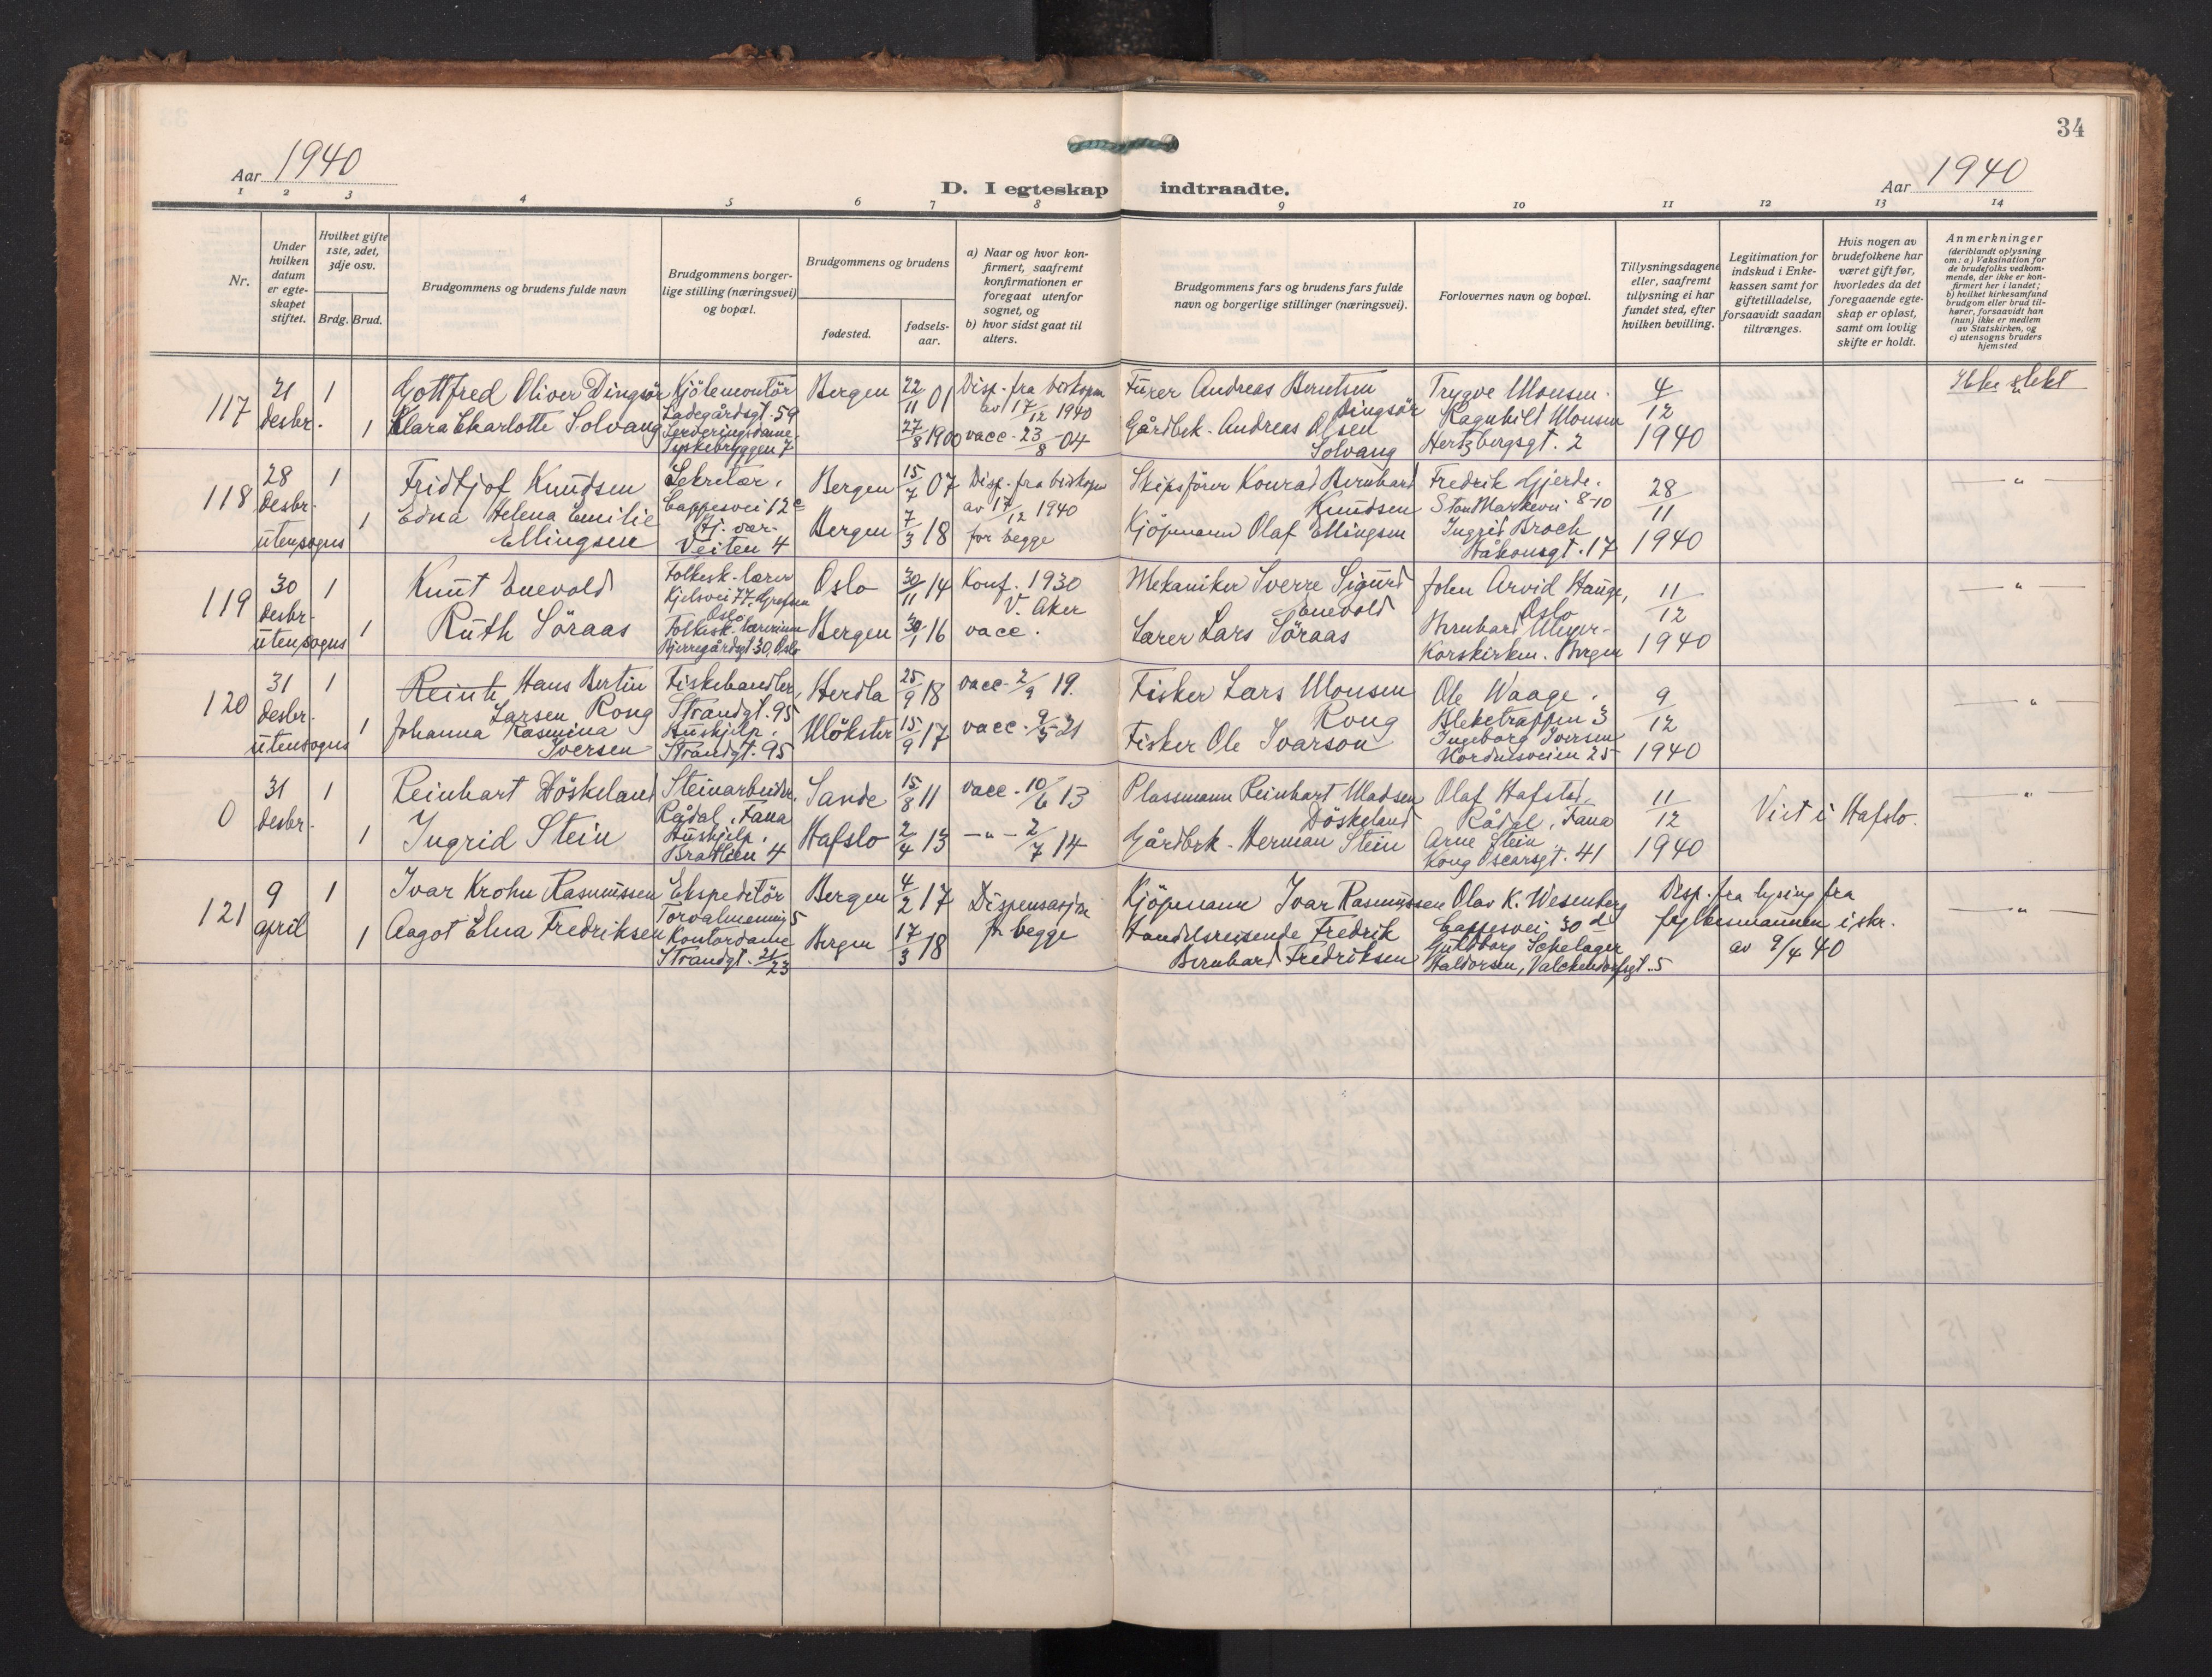 34
Aar 1940
D. I egteskap indtraadte.
Aar 1940
1 2 3 4 5 6 7 8 9 10 11 12 13 14
Nr.
Under hvilken datum er egteskapet stiftet.
Hvilket gifte 1ste, 2det, 3dje osv.
Brdg. Brud.
Brudgommens og brudens fulde navn
Brudgommens borgerlige stilling (næringsvei) og bopæl.
Brudgommens og brudens
fødested.
fødselsaar.
a) Naar og hvor konfirmert, saafremt konfirmationen er foregaat utenfor sognet, og
b) hvor sidst gaat til alters.
Brudgommens fars og brudens fars fulde navn og borgerlige stillinger (næringsvei).
Forlovernes navn og bopæl.
Tillysningsdagene eller, saafremt tillysning ei har fundet sted, efter hvilken bevilling.
Legitimation for indskud i Enkekassen samt for giftetilladelse, forsaavidt saadan tiltrænges.
Hvis nogen av brudefolkene har været gift før, hvorledes da det foregaaende egteskap er opløst, samt om lovlig skifte er holdt.
Anmerkninger
(deriblandt oplysning om: a) Vaksination for de brudefolks vedkommende, der ikke er konfirmert her i landet; b) hvilket kirkesamfund brudgom eller brud tilhører, forsaavidt han (hun) ikke er medlem av Statskirken, og c) utensogns bruders hjemsted
117
21 desbr.
1
1
Gottfred Oliver Dingsör
Klara Charlotte Solvang
Kjölemontör
Ladegårdsgt. 59
Serveringsdame
Tyskebryggen 7
Bergen
22/11 01
27/8 1900
Disp. fra biskopen
av 17/12 1940
vacc. 23/8-04
Fürer Andreas Berntsen
Dingsör
Gårdbrk. Andreas Olsen
Solvang
Trygve Monsen.
Ragnhild Monsen
Hertzbergsgt. 2
4/12
1940
Ikke slekt
118
28 desbr.
utensogns
1
1
Fridtjof Knudsen
Edna Helena Emilie
Ellingsen
Sekretær,
Cappesvei 12c
Hj. vær.
Veiten 4
Bergen
Bergen
15/7 07
7/3 18
Disp. fra biskopen
av 17/12 1940
for begge
Skipsförer Konrad Bernhard
Knudsen
Kjöpmann Olaf Ellingsen
Fredrik Gjerde.
Store Markevei 8-10
Ingrid Broch
Håkonsgt. 17
28/11
1940
— " —
119
30 desbr.
utensogns
1
1
Knut Enevold
Ruth Söraas
Folkesk. lærer
Kjelsvei 77, Grefsen
Oslo
Folkesk. lærerinne
Bjerregårdsgt. 30, Oslo
Oslo
Bergen
30/11 14
30/1 16
Konf. 1930
V. Aker
vacc.
Mekaniker Sverre Sigurd
Enevold
Lærer Lars Söraas
John Arvid Hauge,
Oslo
Bernhard Meyer.
Korskirken. Bergen
11/12
1940
— " —
120
31 desbr.
utensogns
1
1
Reinh Hans Bertin
Larsen Rong
Johanna Rasmina
Iversen
Fiskehandler,
Strandgt. 95
Hushjelp.
Strandgt. 95
Herdla
Mökster
25/9 18
15/9 17
vacc. 2/9 19.
vacc. 9/5-21
Fisker Lars Monsen
Rong
Fisker Ole Ivarson
Ole Waage.
Bleketrappen 3
Ingeborg Iversen
Nordnesveien 25
9/12
1940
— " —
0
31 desbr.
1
1
Reinhart Döskeland
Ingrid Stein
Steinarbeider.
Rådal, Fana
Hushjelp.
Bratlien 4
Sande
Hafslo
15/8 11
2/4 13
vacc. 10/6 13
— " — 2/7 14
Plassmann Reinhart Madsen
Döskeland
Gårdbrk. Herman Stein
Olaf Hafstad,
Rådal, Fana
Arne Stein
Kong Oscarsgt. 41
11/12
1940
Viet i Hafslo.
— " —
121
9 april
1
1
Ivar Krohn Rasmussen
Aagot Elna Fredriksen
Ekspeditör
Torvalmenning 5
Kontordame
Strandgt. 21/23
Bergen
Bergen
4/2 17
17/3 18
Dispensasjon
for begge
Kjöpmann Ivar Rasmussen
Handelsreisende Fredrik
Bernhard Fredriksen
Olav K. Wesenberg
Cappesvei 30 d
Guldborg Schelager
Haldorsen, Valckendorfsgt. 5
Disp. fra lysing fra
fylkesmannen i skr.
av 9/4 40
— " —